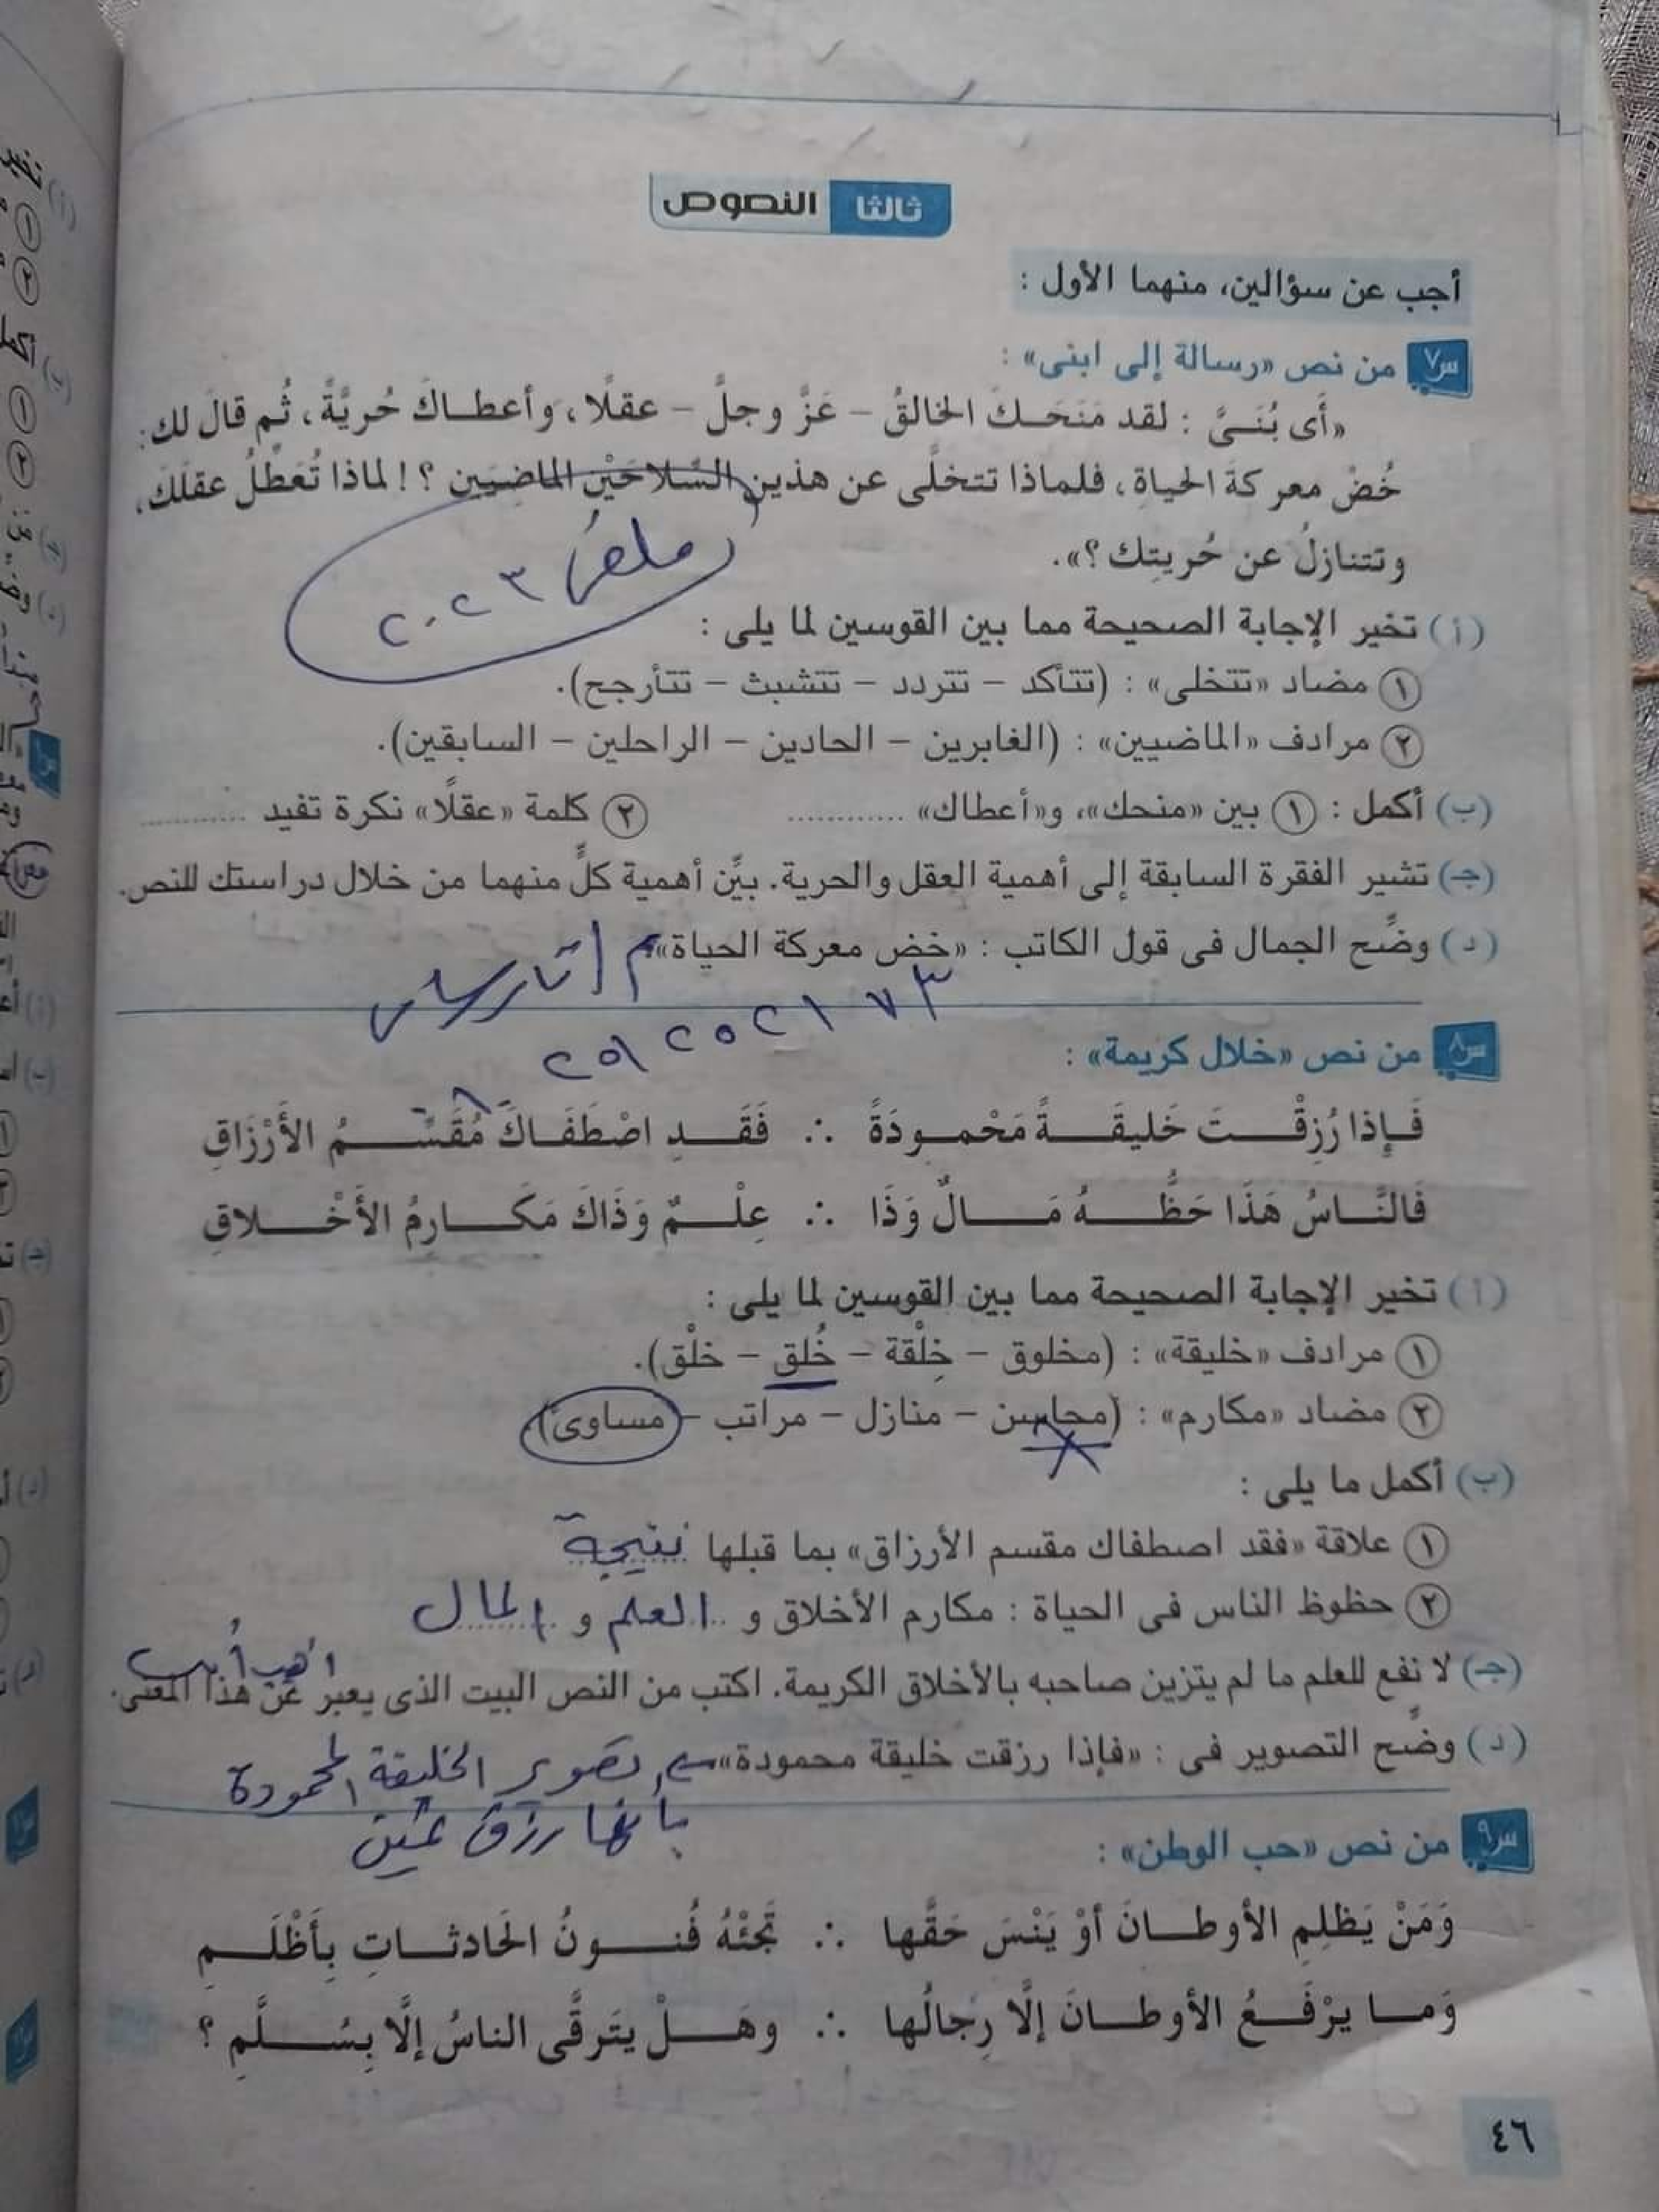 ثالثا النصوص
أجب عن سؤالين، منهما الأول :
س٧ من نص «رسالة إلى ابنى» :
«أَى بُنَىَّ : لقد مَنَحَكَ الخالقُ - عَزَّ وجلَّ - عقلًا، وأعطاكَ حُريَّةً، ثُم قالَ لك:
خُضْ معركةَ الحياةِ، فلماذا تتخلَّى عن هذين السِّلاحَيْن الماضِيَين ؟! لماذا تُعَطِّلُ عقلَكَ،
وتتنازلُ عن حُريتِك ؟».
ملغى ٢٠٢٣
(أ) تخير الإجابة الصحيحة مما بين القوسين لما يلى :
١ مضاد «تتخلى» : (تتأكد - تتردد - تتشبث - تتأرجح).
٢ مرادف «الماضيين» : (الغابرين - الحادين - الراحلين - السابقين).
(ب) أكمل : ١ بين «منحك»، و«أعطاك» ............ ٢ كلمة «عقلًا» نكرة تفيد ...........
(جـ) تشير الفقرة السابقة إلى أهمية العقل والحرية. بيِّن أهمية كلٍّ منهما من خلال دراستك للنص.
(د) وضِّح الجمال فى قول الكاتب : «خض معركة الحياة»
س٨ من نص «خلال كريمة» :
فَإِذا رُزِقْتَ خَليقَةً مَحْمودَةً ∴ فَقَدِ اصْطَفَاكَ مُقَسِّمُ الأَرْزَاقِ
فَالنَّاسُ هَذَا حَظُّهُ مَالٌ وَذَا ∴ عِلْمٌ وَذَاكَ مَكَارِمُ الأَخْلاقِ
(أ) تخير الإجابة الصحيحة مما بين القوسين لما يلى :
١ مرادف «خليقة» : (مخلوق - خِلْقة - خُلق - خلْق).
٢ مضاد «مكارم» : (محاسن - منازل - مراتب - مساوئ).
(ب) أكمل ما يلى :
١ علاقة «فقد اصطفاك مقسم الأرزاق» بما قبلها نتيجة
٢ حظوظ الناس فى الحياة : مكارم الأخلاق و العلم و المال
(جـ) لا نفع للعلم ما لم يتزين صاحبه بالأخلاق الكريمة. اكتب من النص البيت الذى يعبر عن هذا المعنى.
(د) وضِّح التصوير فى : «فإذا رزقت خليقة محمودة» تصوير الخليقة المحمودة
بأنها رزق ثمين
س٩ من نص «حب الوطن» :
وَمَنْ يَظلِمِ الأوطانَ أوْ يَنْسَ حَقَّها ∴ تَجِئْهُ فُنونُ الحَادثاتِ بِأَظْلَمِ
وَما يرْفَعُ الأوطانَ إلَّا رِجالُها ∴ وهَلْ يتَرقَّى الناسُ إلَّا بِسُلَّمِ ؟
٤٦